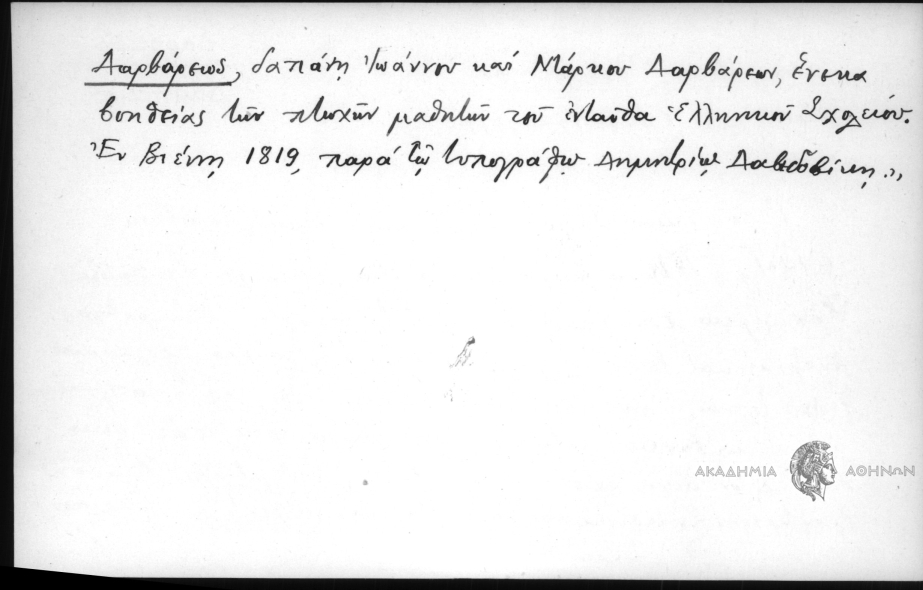 Δαρβάρεως, δαπάνῃ Ἰωάννου καὶ Μάρκου Δαρβάρεων, ἕνεκα
βοηθείας τῶν πτωχῶν μαθητῶν τοῦ ἐνταῦθα Ἑλληνικοῦ Σχολείου.
Ἐν Βιέννῃ 1819, παρὰ τῷ τυπογράφῳ Δημητρίῳ Δαβιδοβίκῃ.,,
ΑΚΑΔΗΜΙΑ ΑΘΗΝΩΝ